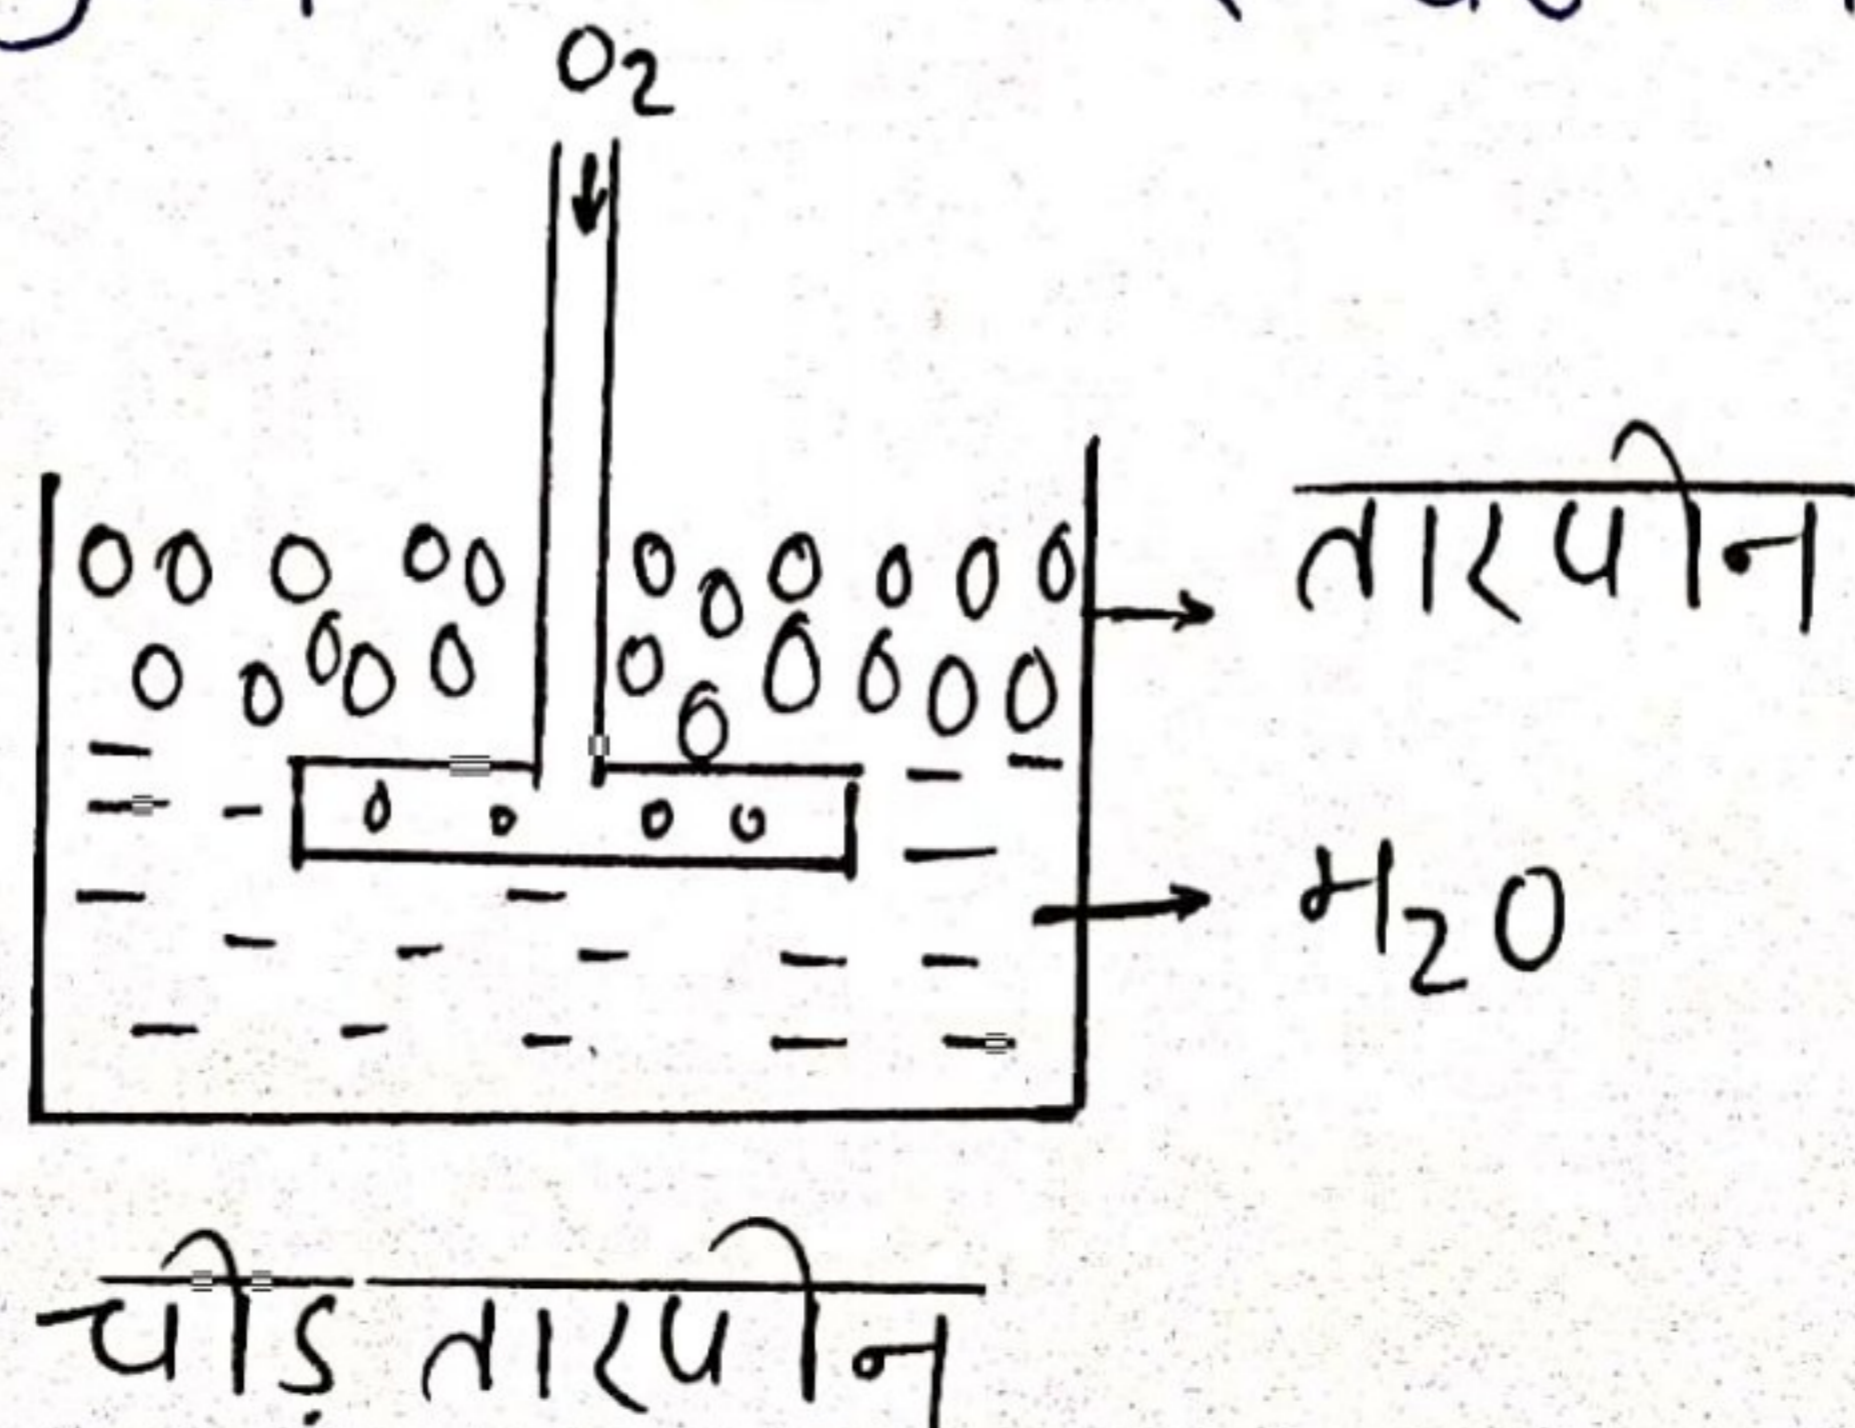 O₂
तारपीन
H₂O
चीड़ तारपीन